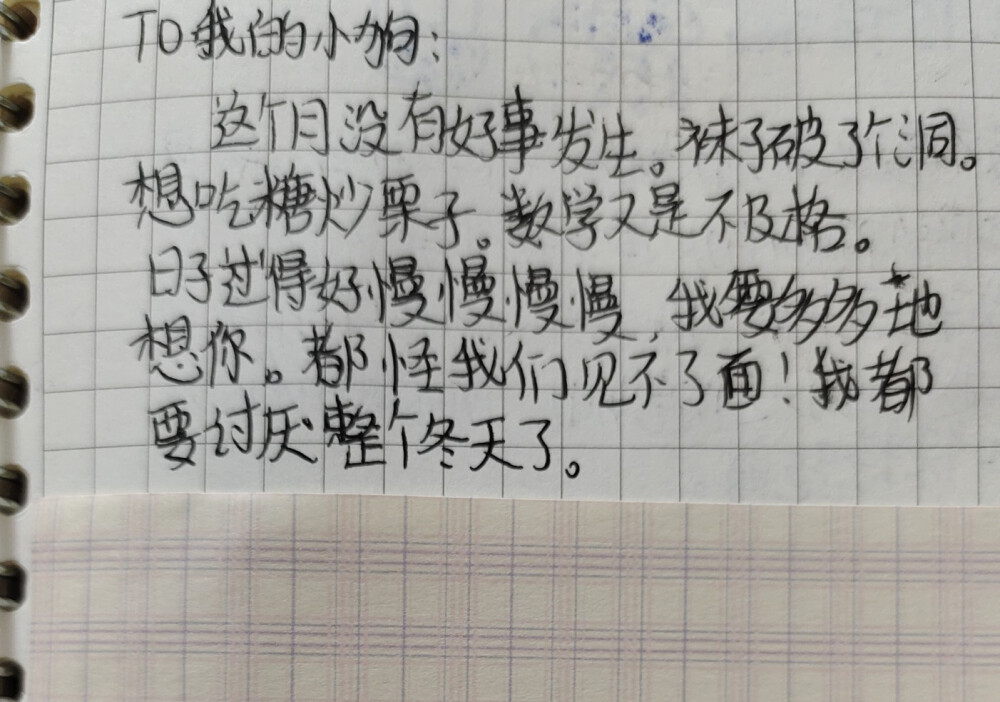 TO我的小狗：
这个月没有好事发生。袜子破了个洞。
想吃糖炒栗子。数学又是不及格。
日子过得好慢慢慢慢，我要多多地
想你。都怪我们见不了面！我都
要讨厌整个冬天了。